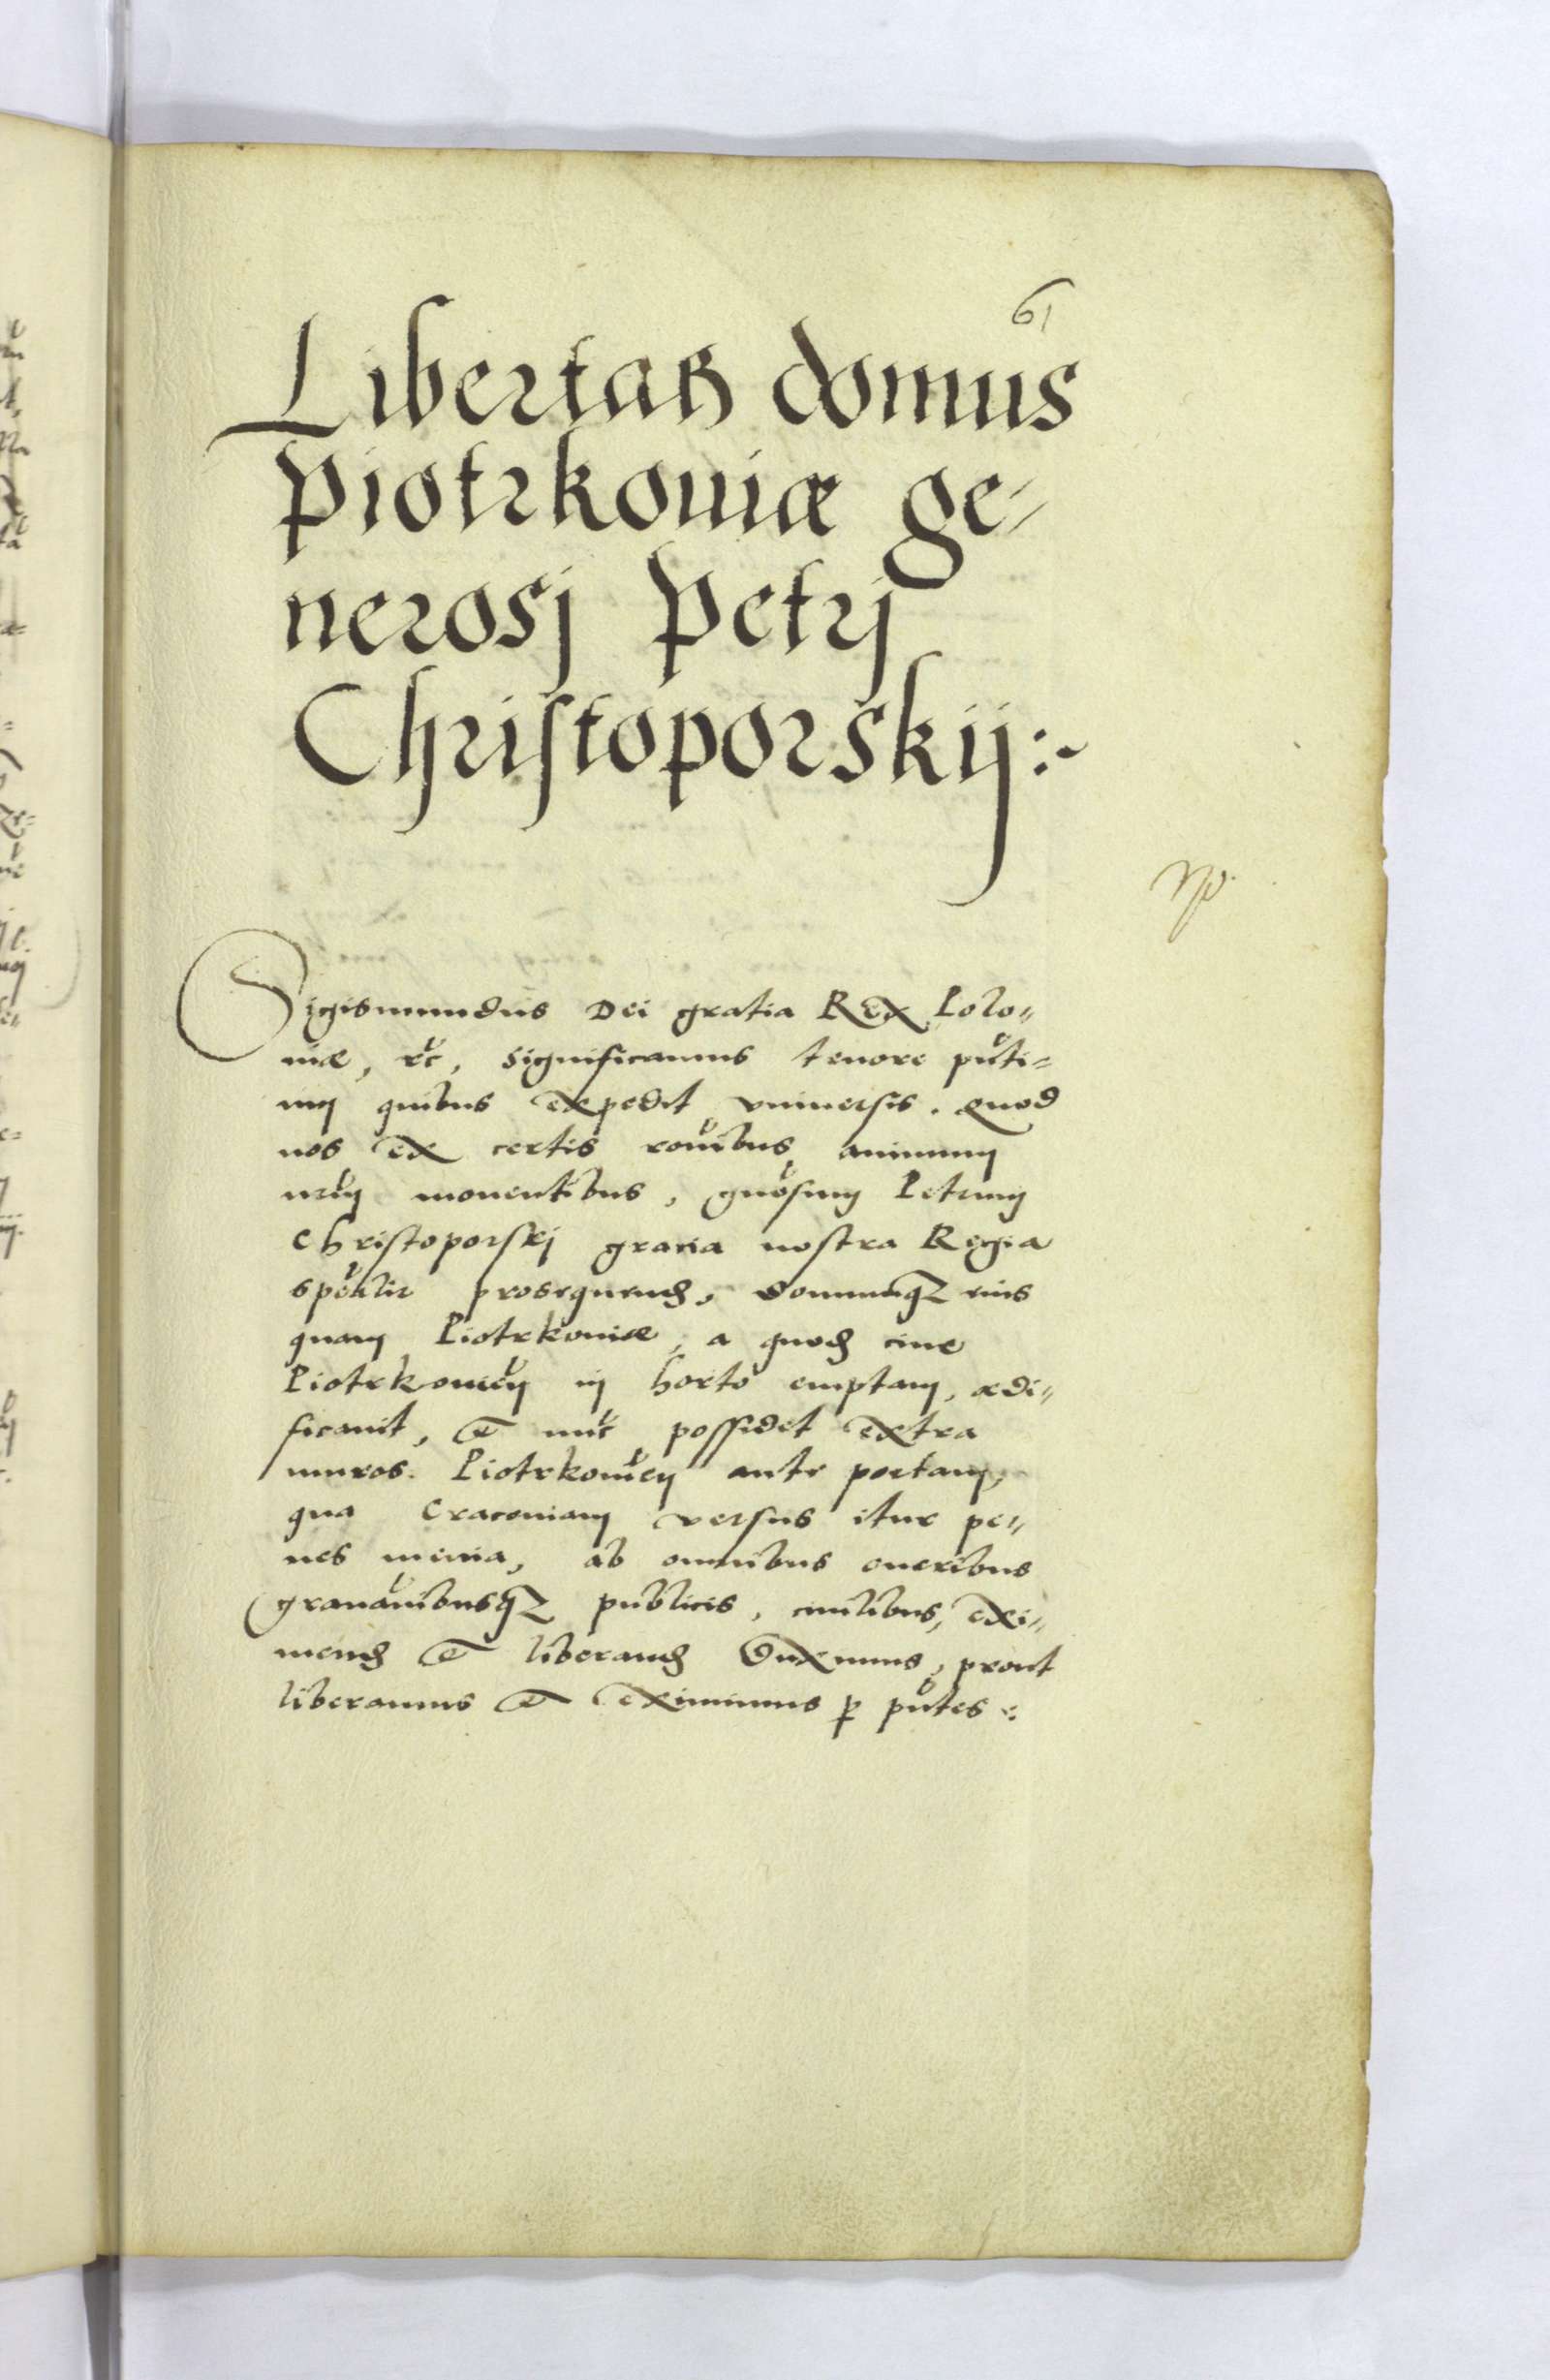 61
Libertas domus
Piotrkouiæ ge-
nerosj Petrj
Christoporskij:~
Sigismundus Dei gratia Rex Polo-
niæ, etc, Significamus tenore pnti-
um quibus expedit vniuersis. Quod
nos ex certis ronibus animum
nrum mouentibus, gnosum Petrum
Christoporskj gratia nostra Regia
spealir prosequend, domumqz eius
quam Piotrkouiæ, a quod ciue
Piotrkouien in horto emptam, ædi-
ficauit, et nuc possidet extra
muros Piotrkouien ante portam,
qua Cracouiam versus itur pe-
nes menia, ab omnibus oneribus
grauaibusqz publicis, ciuilibus, exi-
mend et liberand duximus, prout
liberamus et eximimus p pntes.